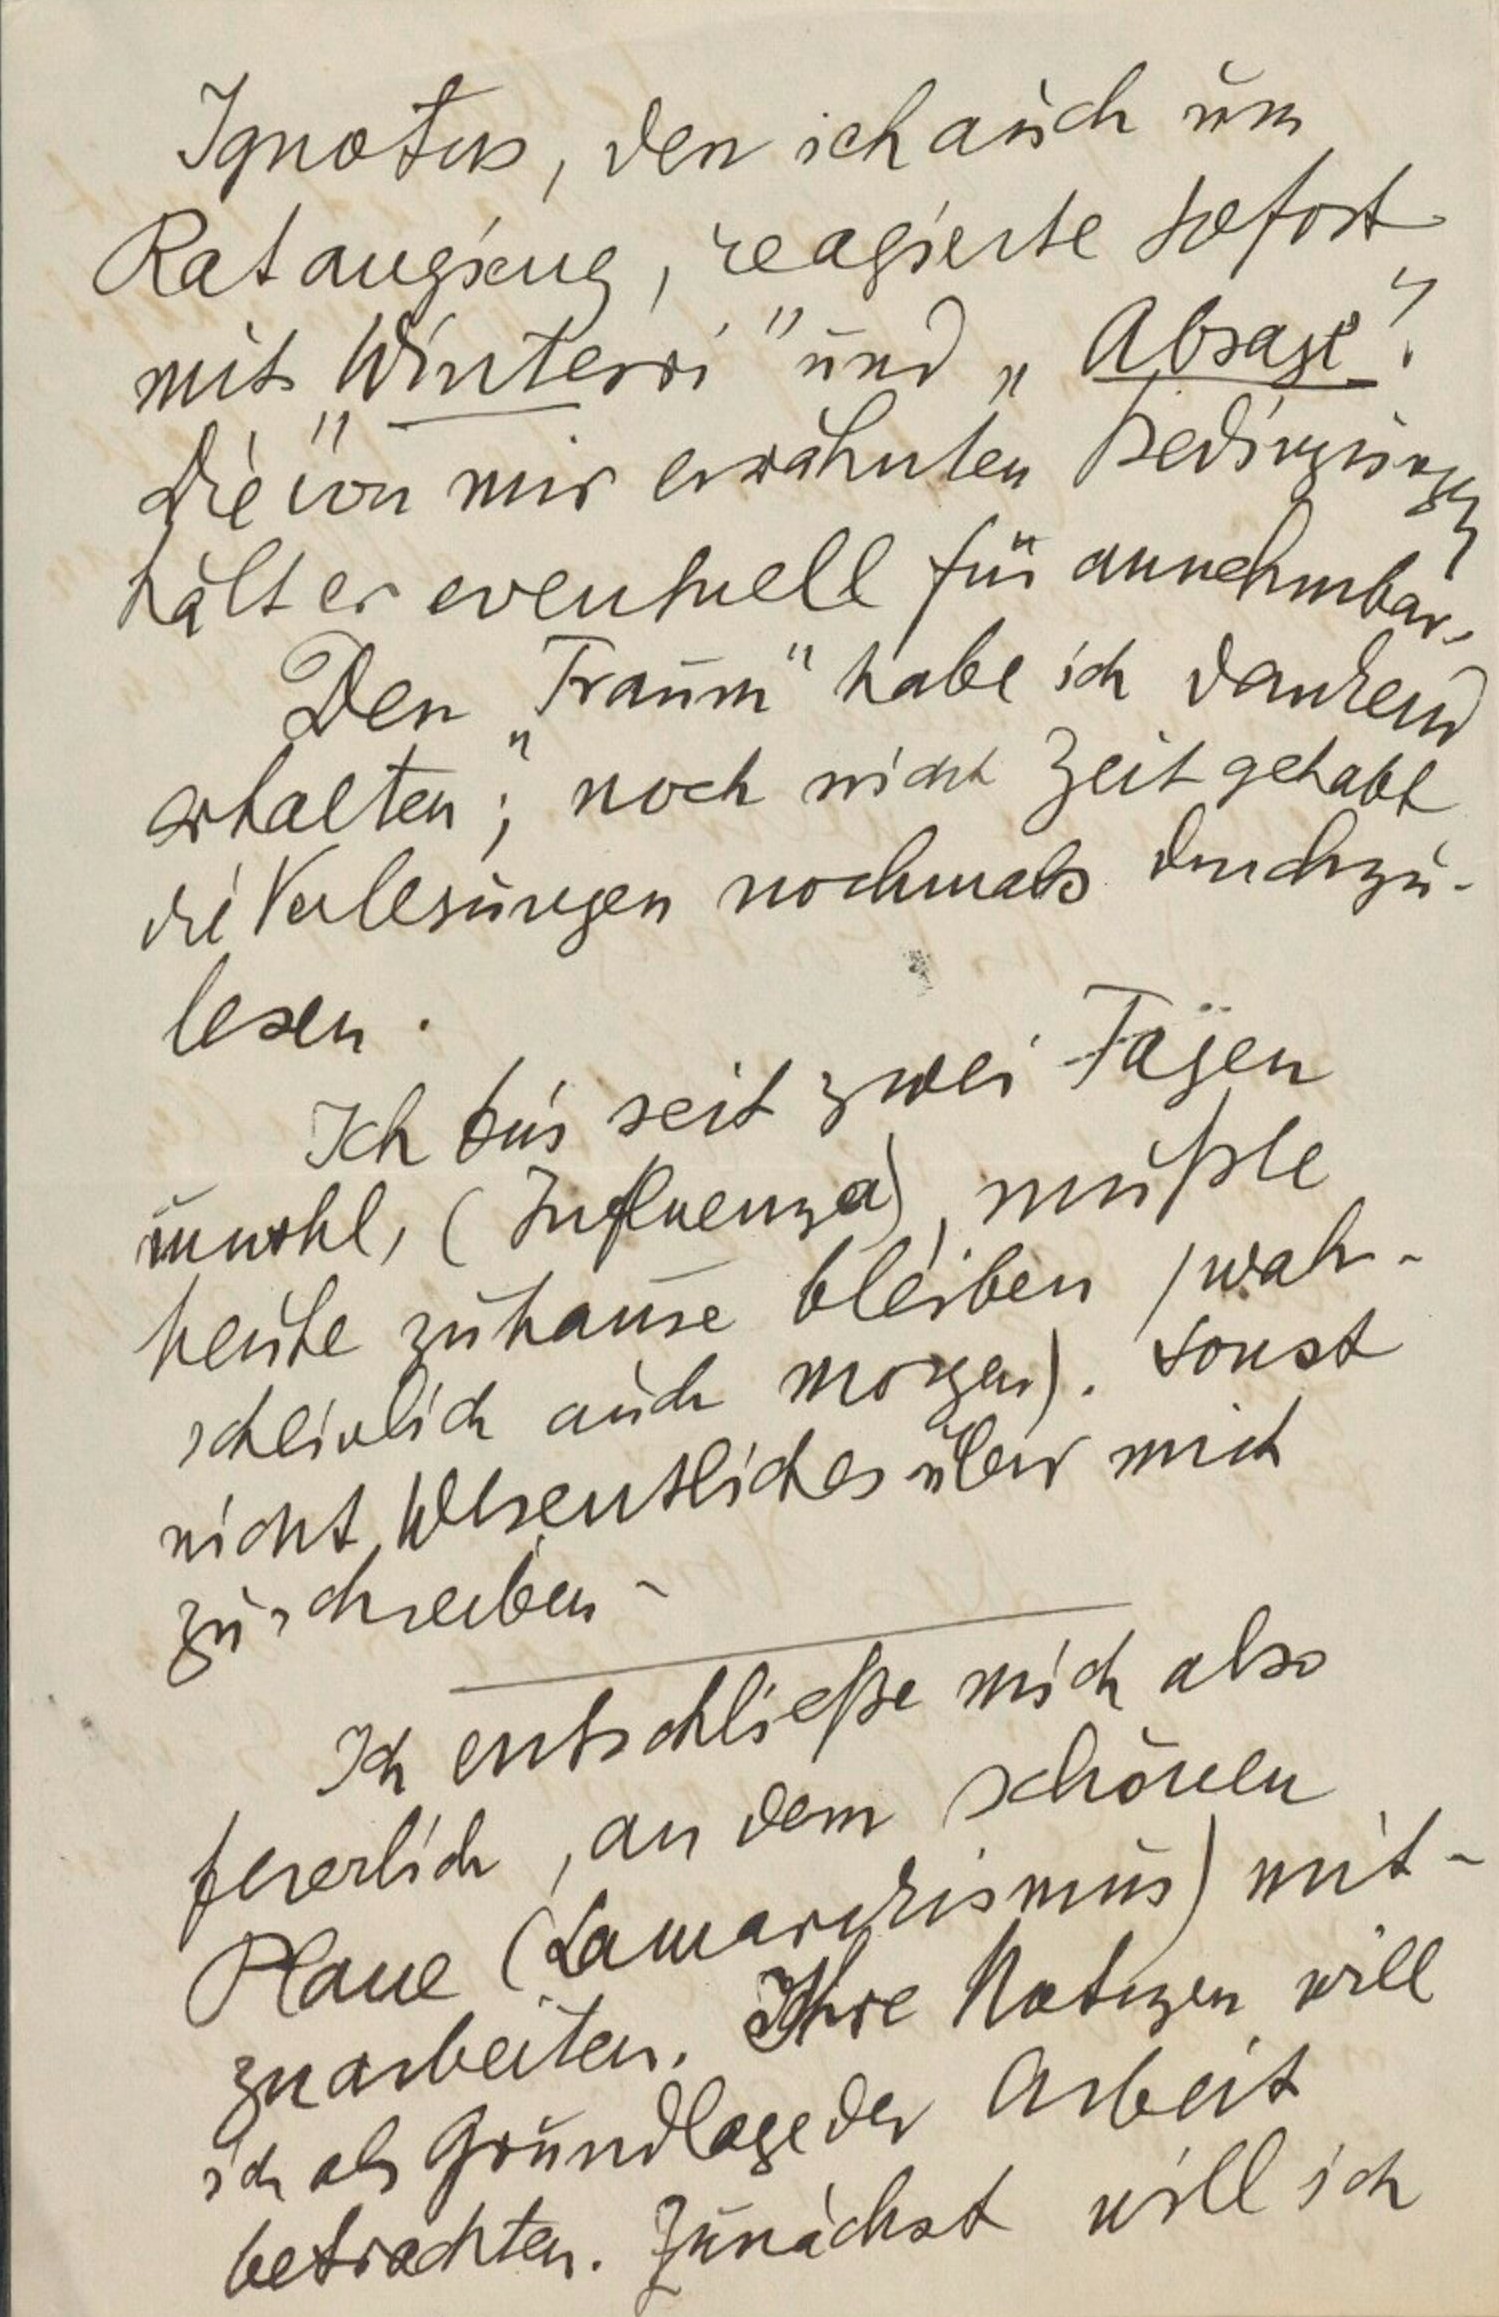 Ignotus, den ich auch um
Rat anging, reagierte sofort
mit „Winterri" und „Absage".
Die von mir erwähnten Bedingungen
hält er eventuell für annehmbar.
Den „Traum" habe ich dankend
erhalten; noch nicht Zeit gehabt
die Vorlesungen nochmals durchzu-
lesen.
Ich bin seit zwei Tagen
unwohl, (Influenza), mußte
heute zuhause bleiben (wahr-
scheinlich auch morgen). Sonst
nicht Wesentliches über mich
zu schreiben -
Ich entschließe mich also
feierlich, an dem schönen
Plane (Lamarckismus) mit-
zuarbeiten. Ihre Notizen will
ich als Grundlage der Arbeit
betrachten. Zunächst will ich